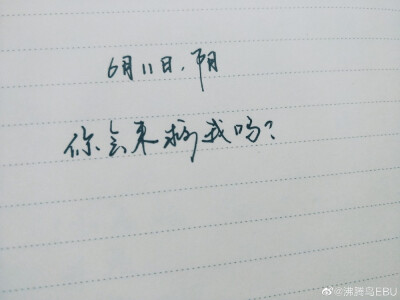 6月11日，阴
你会来救我吗？
@沸腾鸟EBU